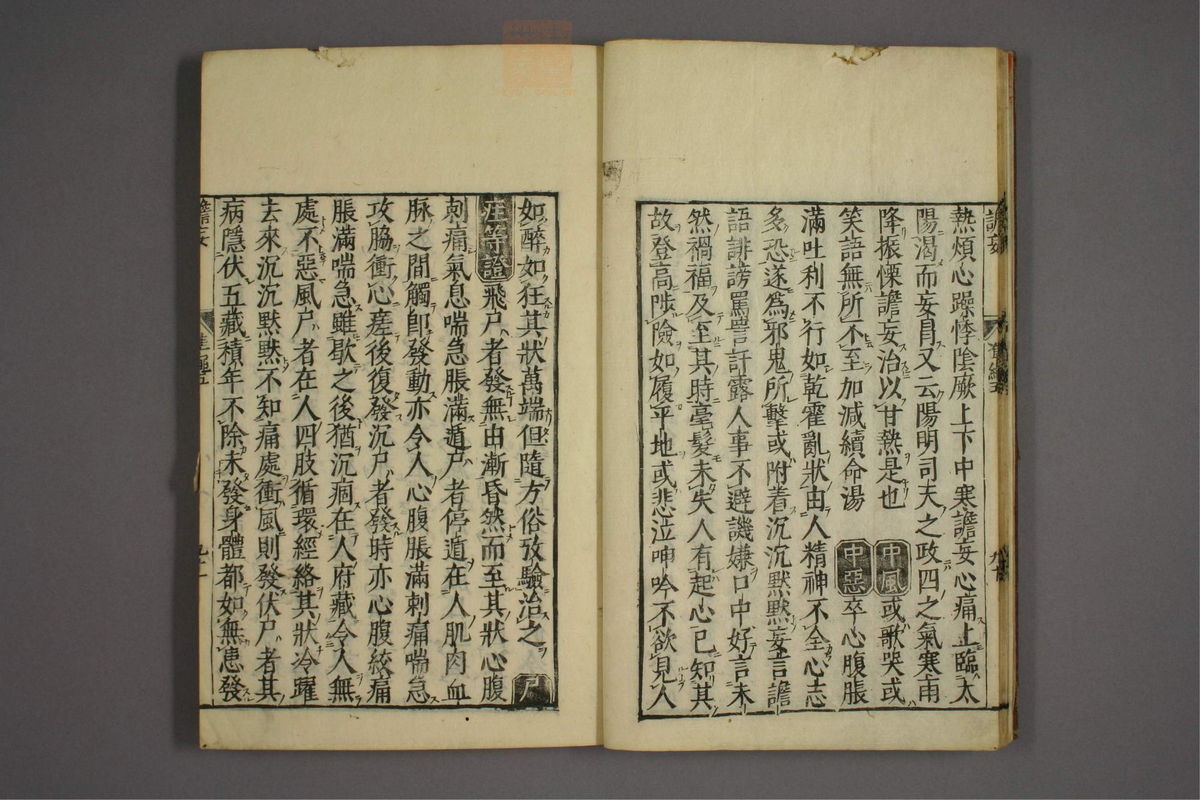 熱煩心躁悸陰厥上下中寒譫妄心痛上臨太
陽渴而妄冒又云陽明司天之政四之氣寒雨
降振慄譫妄治以甘熱是也 中風 或歌哭或
笑語無所不至加減續命湯 中惡 卒心腹脹
滿吐利不行如乾霍亂狀由人精神不全心志
多恐遂為邪鬼所擊或附着沉沉默默妄言譫
語誹謗罵詈訐露人事不避譏嫌口中好言未
然禍福及至其時毫髮未失人有起心已知其
故登高陟險如履平地或悲泣呻吟不欲見人
如醉如狂其狀萬端但隨方俗攷驗治之 尸
疰等證 飛尸者發無由漸昏然而至其狀心腹
刺痛氣息喘急脹滿遁尸者停遁在人肌肉血
脉之間觸卽發動亦令人心腹脹滿刺痛喘急
攻脇衝心瘥後復發沉尸者發時亦心腹絞痛
脹滿喘急雖歇之後猶沉痼在人府藏令人無
處不惡風尸者在人四肢循環經絡其狀冷躍
去來沉沉默默不知痛處衝風則發伏尸者其
病隱伏五藏積年不除未發身體都如無患發